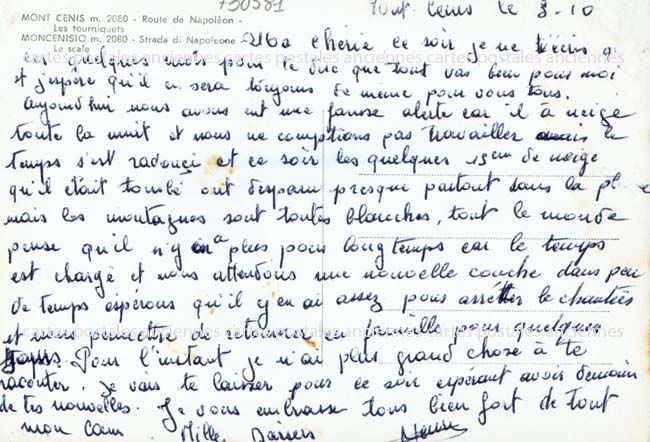 730581
MONT CENIS m. 2080 - Route de Napoléon -
Les tourniquets
MONCENISIO m. 2080 - Strada di Napoleone -
Le scale
Mont Cenis le 3-10
Ma cherie ce soir je ne t'écris q
ces quelques mots pour te dire que tout vas bien pour moi
et j'espère qu'il en sera toujours de même pour vous tous.
Aujourd'hui nous avons eut une fausse alerte car il à neigé
toute la nuit et nous ne comptions pas travailler mais le
temps s'est radouçi et ce soir les quelques 15cm de neige
qu'il était tombé ont disparu presque partout dans la pl
mais les montagnes sont toutes blanches, tout le monde
pense qu'il n'y en a plus pour longtemps car le temps
est chargé et nous attendons une nouvelle couche dans peu
de temps espérons qu'il y en ai assez pour arrétter le chantiers
et nous permettre de retourner en famille pour quelques
jours. Pour l'instant je n'ai plus grand chose à te
raconter. je vais te laisser pour ce soir espérant avoir demain
de tes nouvelles. Je vous embrasse tous bien fort de tout
mon cœur Milles Baisers
cartes postales anciennes cartes postales anciennes cartes postales anciennes
cartes postales anciennes cartes postales anciennes cartes postales anciennes